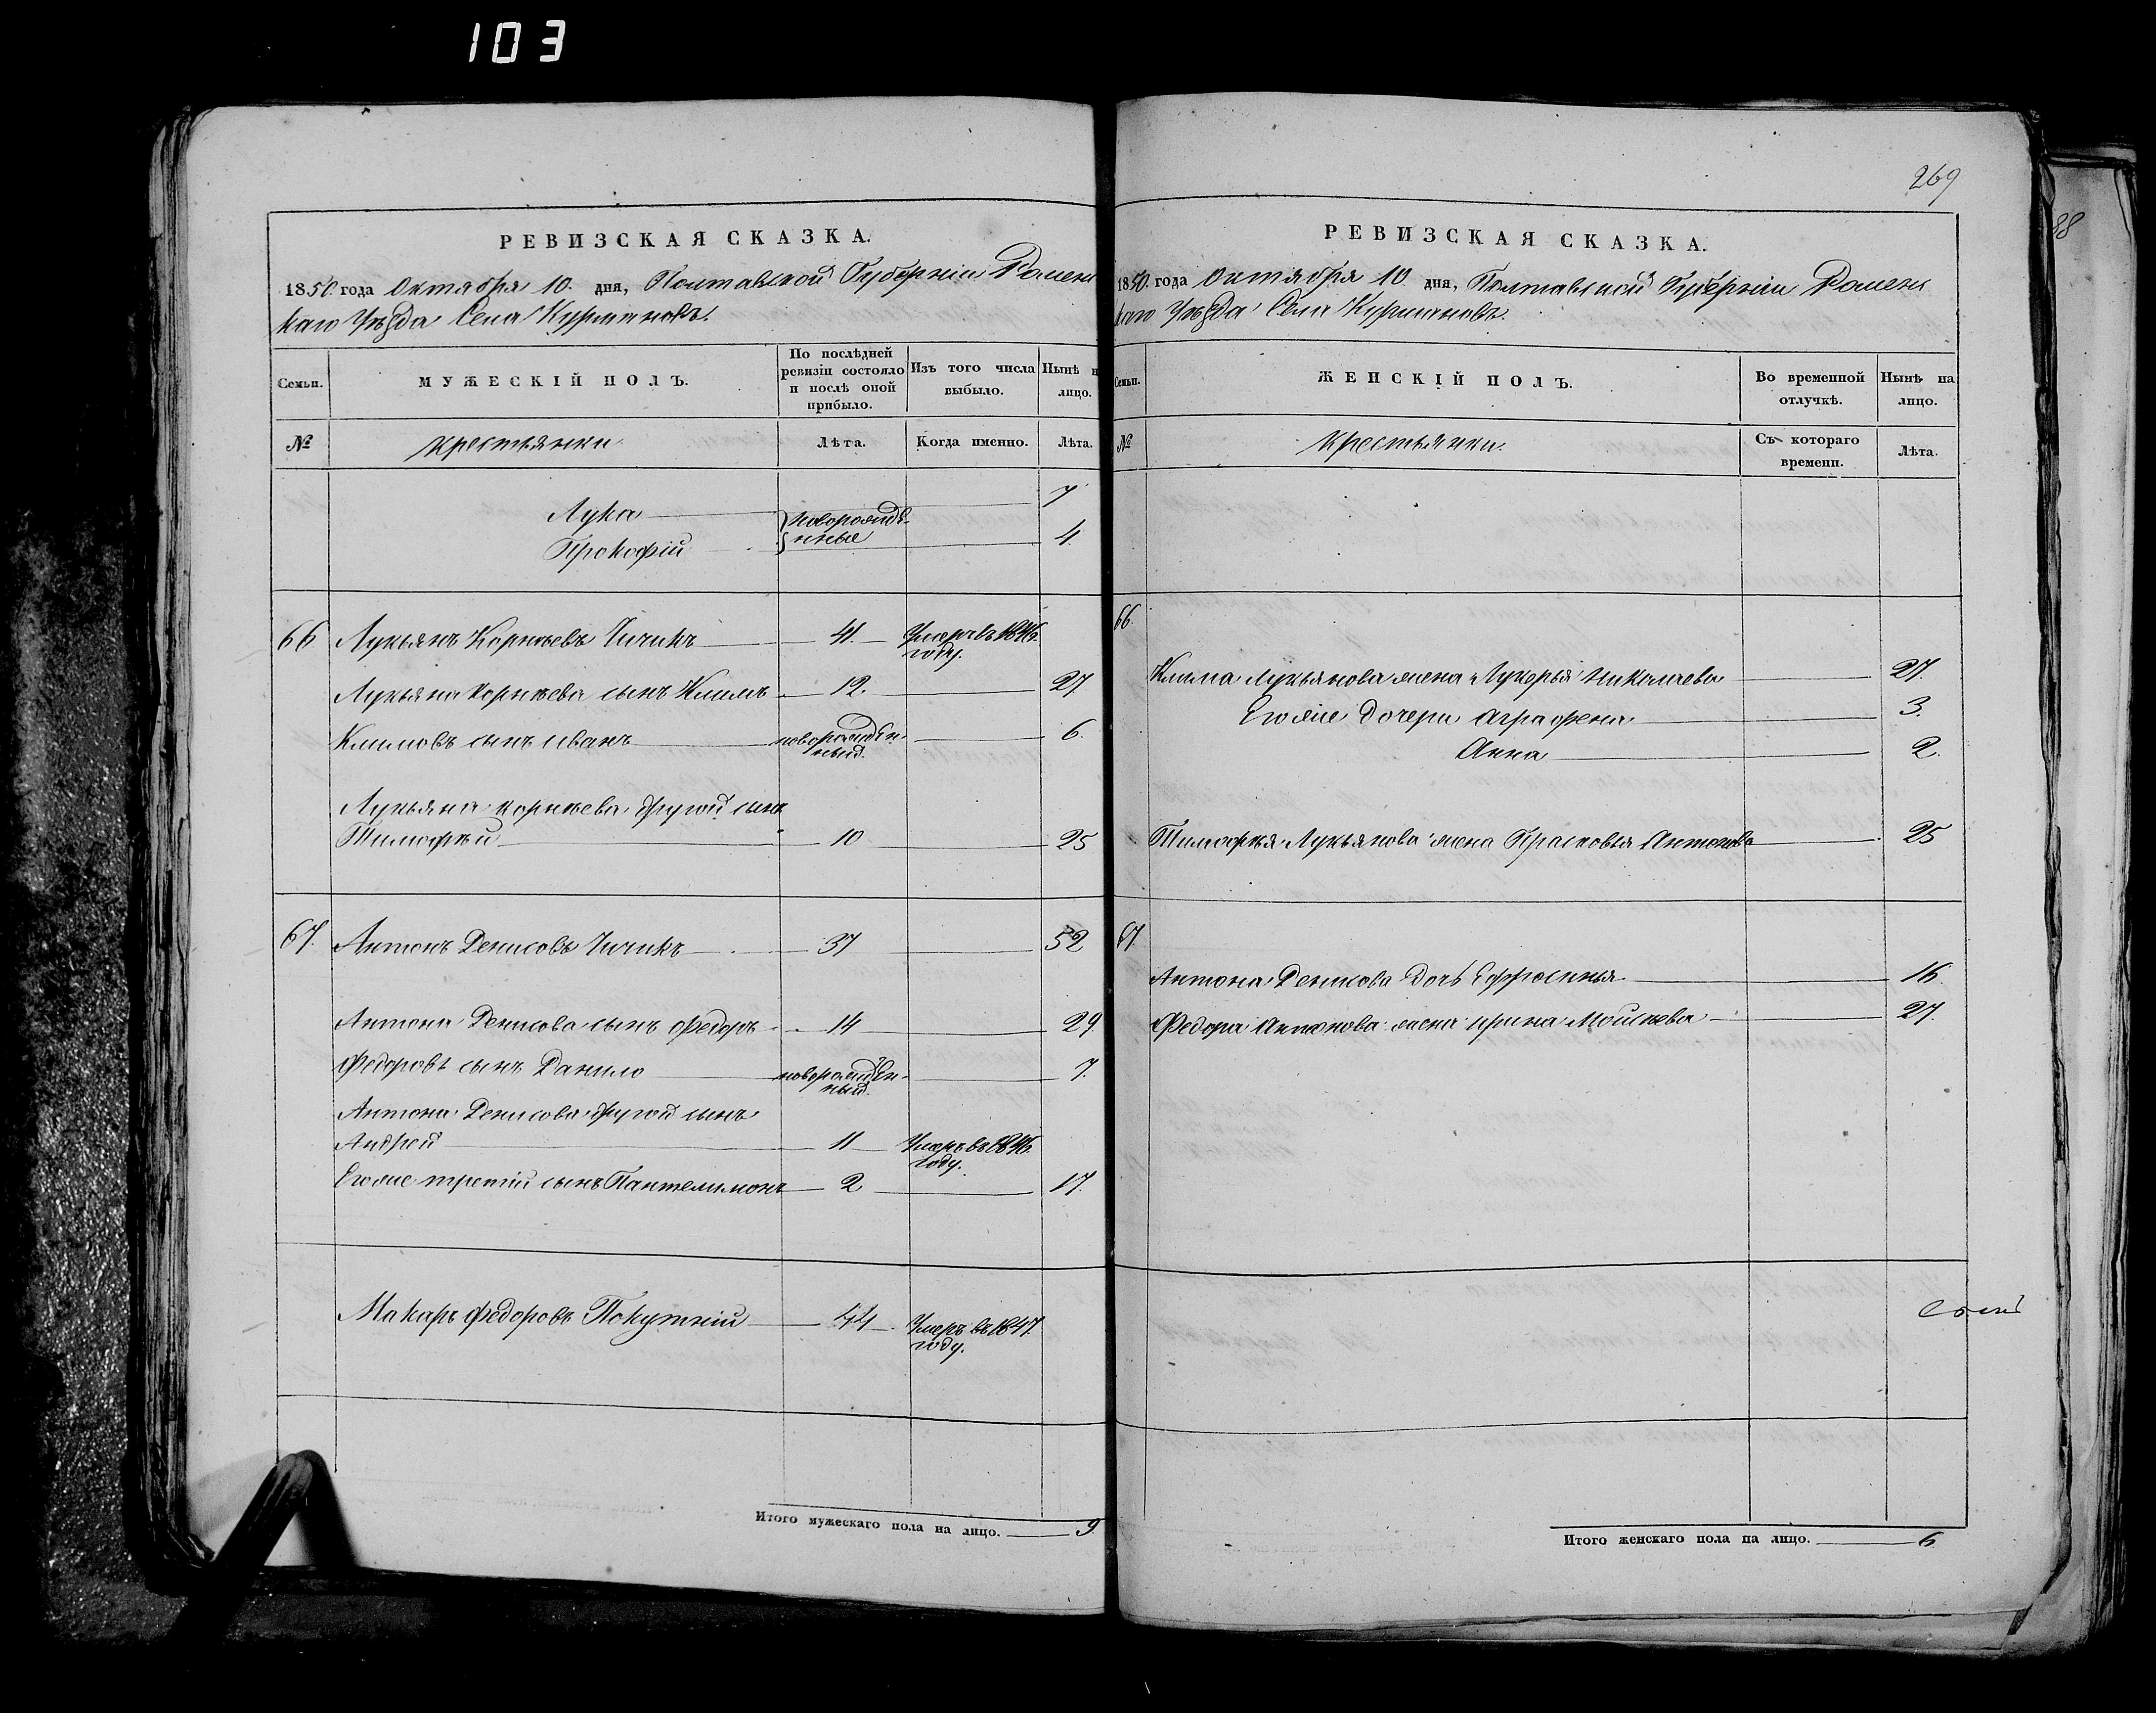 103
РЕВИЗСКАЯ СКАЗКА.
1850. года Октября 10. дня, Полтавской Губерніи Ромен
каго Уѣзда Села Курмановъ.
Семьи.
МУЖЕСКІЙ ПОЛЪ.
По послѣдней ревизіи состояло и послѣ оной прибыло.
Изъ того числа выбыло.
Нынѣ н лицо.
№
крестьянки
Лѣта.
Когда именно.
Лѣта.
Лука 7
новорожде
нные
Прокофій 4.
66 Лукьянъ Корнѣевъ Чичикъ 41. Умеръ въ 1846.
году.
Лукьяна Корнѣева сынъ Климъ 12. 27
Климовъ сынъ иванъ новорожден- 6.
ный.
Лукьяна корнѣева другой сынъ
Тимофѣй 10 25
67. Антонъ Денисовъ Чичикъ 37 52
Антона Денисова сынъ Федоръ 14 29.
Федоровъ сынъ Данило новорожден- 7.
ный.
Антона Денисова другой сынъ
Андрей 11 Умеръ въ 1846.
году.
Егоже третій сынъ Пантелимонъ 2 17.
Макаръ Федоровъ Покутній 44 Умеръ въ 1847.
году.
Итого мужескаго пола на лицо. 9.
269
РЕВИЗСКАЯ СКАЗКА.
1850. года Октября 10. дня, Полтавской Губерніи Ромен
каго Уѣзда Села Курмановъ.
Семьи.
ЖЕНСКІЙ ПОЛЪ.
Во временной отлучкѣ.
Нынѣ на лицо.
№
Крестьянки.
Съ котораго времени.
Лѣта.
66.
Клима Лукьянова жена Лукерья Николаева 27.
Егоже дочери аграфена 3.
Анна 2.
Тимофѣя Лукьянова жена Прасковья Антонова 25
67.
Антона Денисова Дочь Ефросинья 16
Федора Антонова жена ирина Моисѣева 27.
Итого женскаго пола на лицо. 6.
88